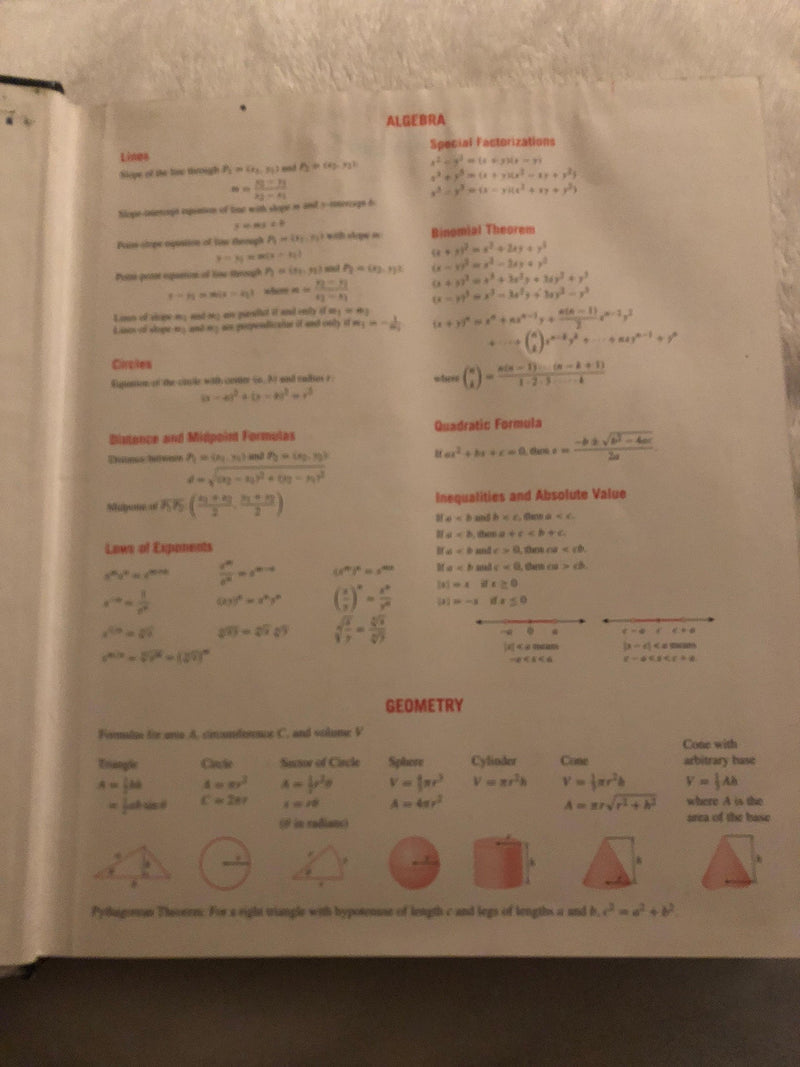 ALGEBRA
Lines
Slope of the line through P₁ = (x₁, y₁) and P₂ = (x₂, y₂):
m = (y₂ − y₁)/(x₂ − x₁)
Slope-intercept equation of line with slope m and y-intercept b:
y = mx + b
Point-slope equation of line through P₁ = (x₁, y₁) with slope m:
y − y₁ = m(x − x₁)
Point-point equation of line through P₁ = (x₁, y₁) and P₂ = (x₂, y₂):
y − y₁ = m(x − x₁) where m = (y₂ − y₁)/(x₂ − x₁)
Lines of slope m₁ and m₂ are parallel if and only if m₁ = m₂
Lines of slope m₁ and m₂ are perpendicular if and only if m₁ = −1/m₂
Circles
Equation of the circle with center (a, b) and radius r:
(x − a)² + (y − b)² = r²
Distance and Midpoint Formulas
Distance between P₁ = (x₁, y₁) and P₂ = (x₂, y₂):
d = √((x₂ − x₁)² + (y₂ − y₁)²)
Midpoint of P₁P₂: ((x₁ + x₂)/2, (y₁ + y₂)/2)
Laws of Exponents
xᵐxⁿ = xᵐ⁺ⁿ xᵐ/xⁿ = xᵐ⁻ⁿ (xᵐ)ⁿ = xᵐⁿ
x⁻ⁿ = 1/xⁿ (xy)ⁿ = xⁿyⁿ (x/y)ⁿ = xⁿ/yⁿ
x¹ᐟⁿ = ⁿ√x ⁿ√xy = ⁿ√x ⁿ√y ⁿ√(x/y) = ⁿ√x/ⁿ√y
xᵐᐟⁿ = ⁿ√xᵐ = (ⁿ√x)ᵐ
Special Factorizations
x² − y² = (x + y)(x − y)
x³ + y³ = (x + y)(x² − xy + y²)
x³ − y³ = (x − y)(x² + xy + y²)
Binomial Theorem
(x + y)² = x² + 2xy + y²
(x − y)² = x² − 2xy + y²
(x + y)³ = x³ + 3x²y + 3xy² + y³
(x − y)³ = x³ − 3x²y + 3xy² − y³
(x + y)ⁿ = xⁿ + nxⁿ⁻¹y + n(n − 1)/2 xⁿ⁻²y²
+ ··· + (n k) xⁿ⁻ᵏyᵏ + ··· + nxyⁿ⁻¹ + yⁿ
where (n k) = n(n − 1)···(n − k + 1)/1·2·3·····k
Quadratic Formula
If ax² + bx + c = 0, then x = (−b ± √(b² − 4ac))/2a.
Inequalities and Absolute Value
If a < b and b < c, then a < c.
If a < b, then a + c < b + c.
If a < b and c > 0, then ca < cb.
If a < b and c < 0, then ca > cb.
|x| = x if x ≥ 0
|x| = −x if x ≤ 0
−a 0 a
|x| < a means
−a < x < a.
c − a c c + a
|x − c| < a means
c − a < x < c + a.
GEOMETRY
Formulas for area A, circumference C, and volume V
Triangle
A = ½bh
= ½ab sin θ
Circle
A = πr²
C = 2πr
Sector of Circle
A = ½r²θ
s = rθ
(θ in radians)
Sphere
V = 4/3 πr³
A = 4πr²
Cylinder
V = πr²h
Cone
V = ⅓πr²h
A = πr√(r² + h²)
Cone with
arbitrary base
V = ⅓Ah
where A is the
area of the base
Pythagorean Theorem: For a right triangle with hypotenuse of length c and legs of lengths a and b, c² = a² + b².